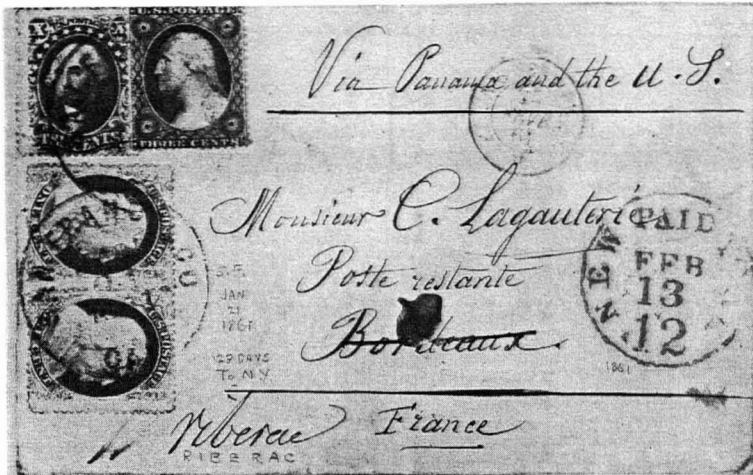 U.S. POSTAGE
THREE CENTS
Via Panama and the U. S.
Monsieur C. Lagauterie
Poste restante
Bordeaux.
S.F.
JAN
21
1861
29 DAYS
TO NY
NEW
PAID
FEB
13
12
1861
riberac
RIBERAC
France